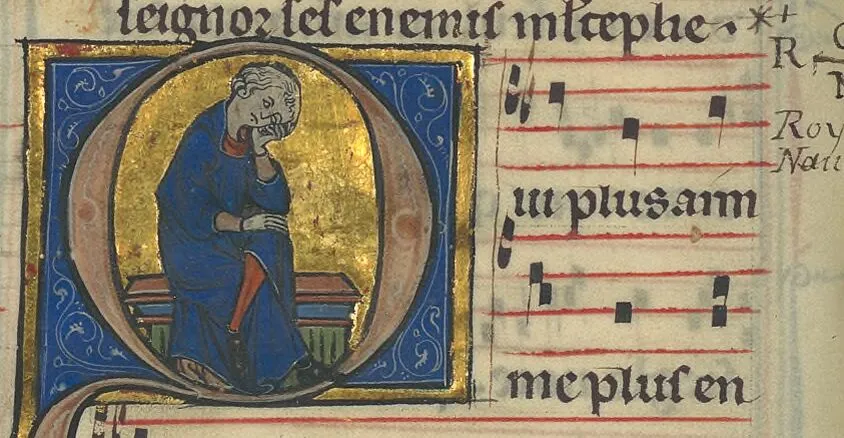 seignor ses enemis
R
Roy
Nau
Qui plus aim
me plus en